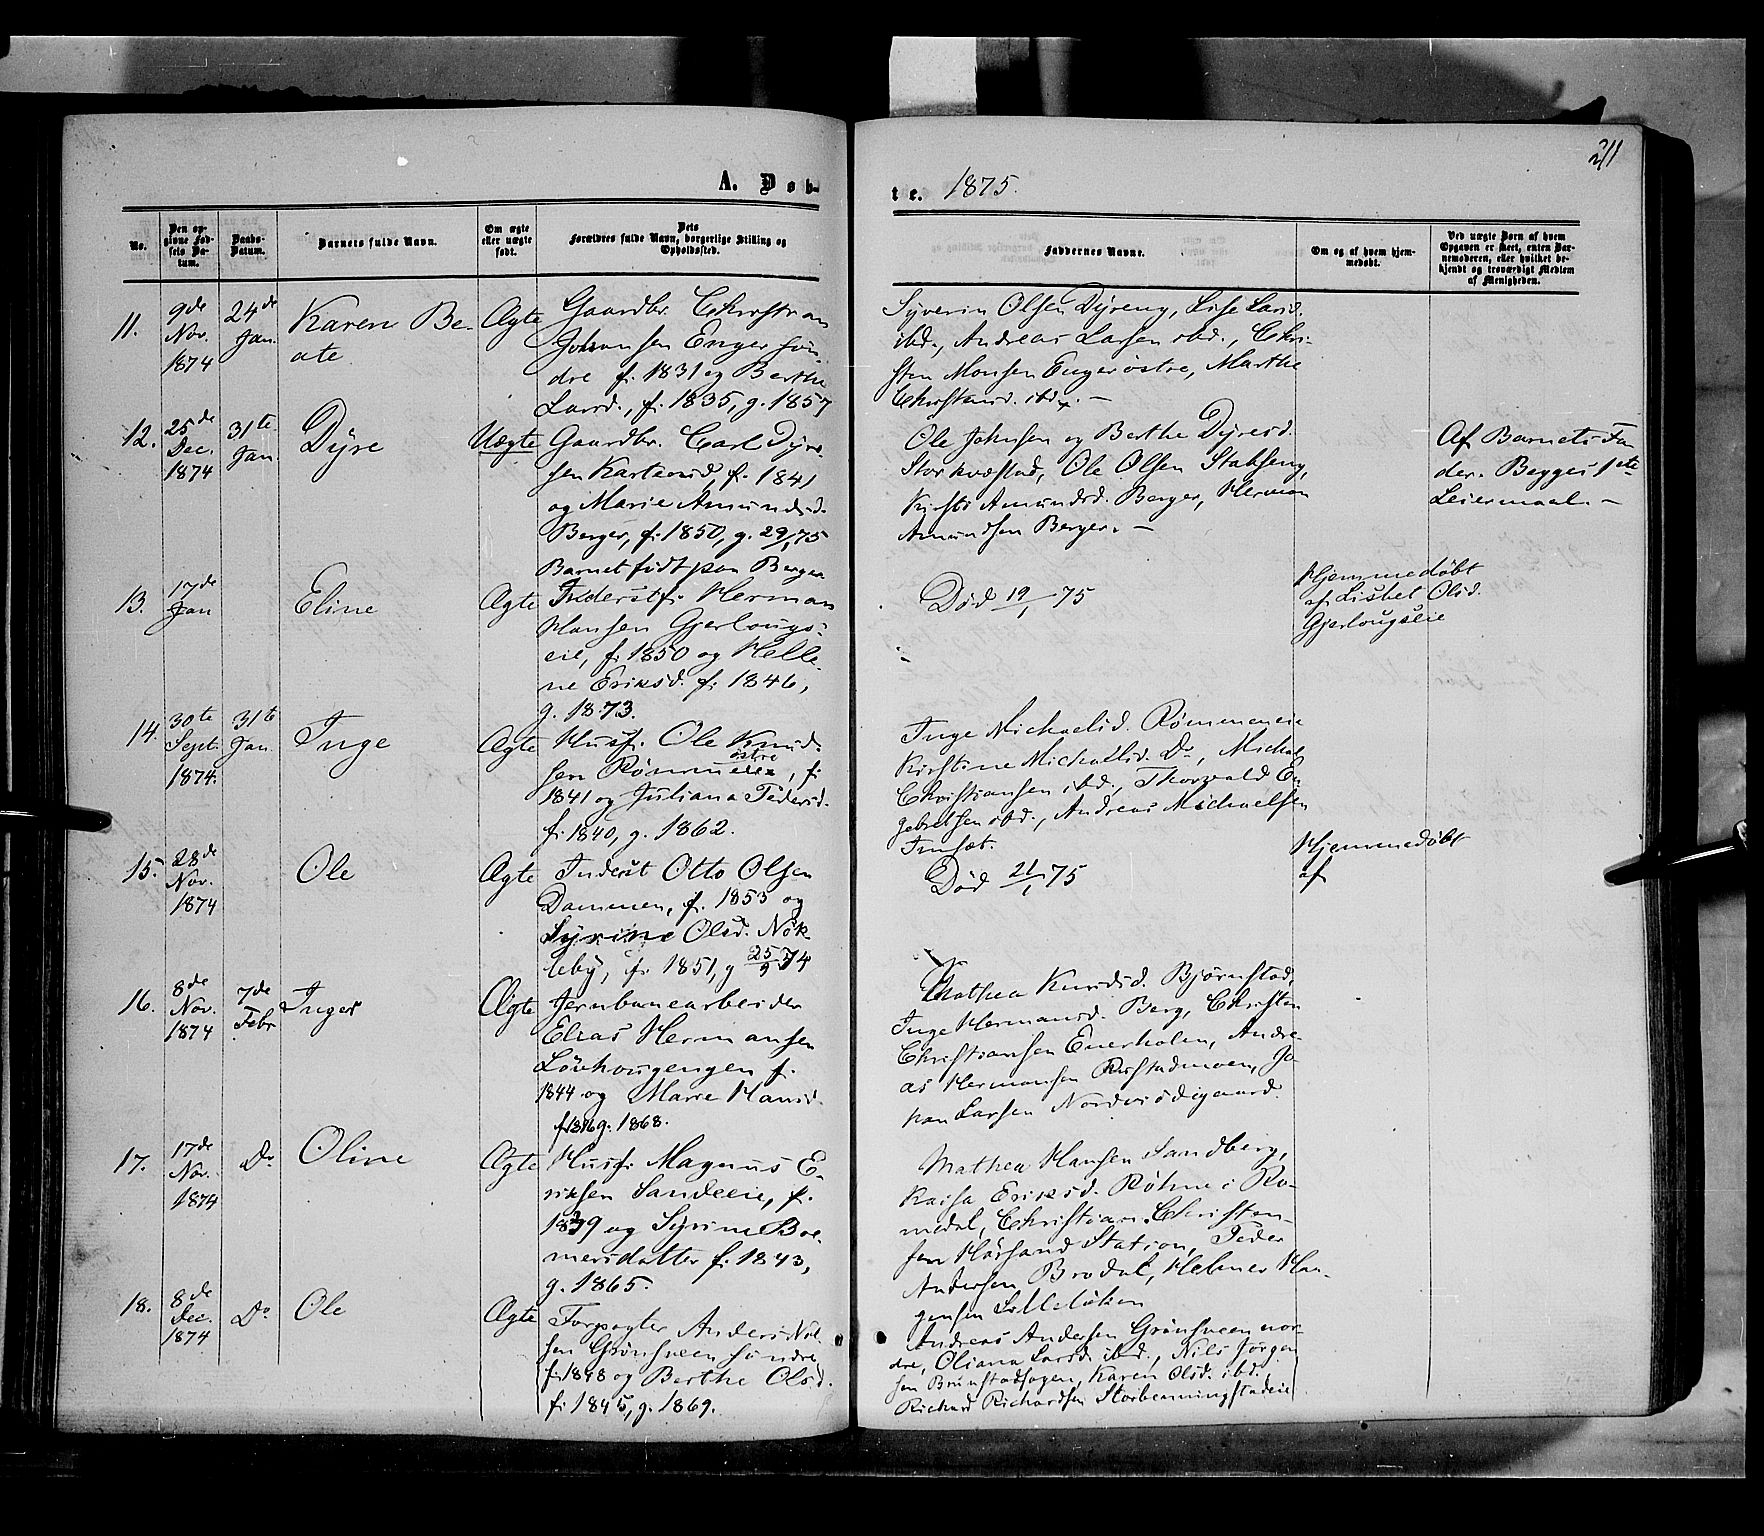 211
A. Døb-
te. 1875.
No.
Den op-
givne Fød-
sels Da-
tum.
Daabs-
Datum.
Barnets fulde Navn.
Om ægte
eller uægte
født.
Dets
Forældres fulde Navn, borgerlige Stilling og
Opholdssted.
Faddernes Navne.
Om og af hvem hjem-
medøbt.
Ved uægte Børn af hvem
Opgaven er skeet, enten Bar-
nemoderen, eller hvilket be-
kjendt og troværdigt Medlem
af Menigheden.
11.
9de
Nov.
1874
24de
Jan.
Karen Be-
ate.
Ægte
Gaardbr. Christian
Johansen Enger søn-
dre f. 1831 og Berthe
Larsd., f. 1835, g. 1857
Syverin Olsen Dyreng, Lise Larsd.
ibd., Andreas Larsen ibd., Chri-
sten Monsen Enger østre, Marthe
Christensd. ibd. –
12.
25de
Dec.
1874
31te
Jan.
Dyre
Uægte
Gaardbr. Carl Dyre-
sen, f. 1841
og Marie Amundsd.
Berger, f. 1850, g. 29/1 75
Barnet født paa Berger
Ole Johnsen og Berthe Dyresd.
Storkvæstad, Ole Olsen Stabseng,
Kirsti Amundsd. Berger, Herman
Amundsen Berger. –
Af Barnets Fa-
der. Begges 1ste
Leiermaal. –
13.
17de
Jan
Eline
Ægte
Inderstf. Herman
Hansen Gjerlougs-
eie, f. 1850 og Helle-
ne Eriksd. f. 1846,
g. 1873.
Død 19/1 75
Hjemmedøbt
af Lisbet Olsd.
Gjerlougseie
14.
30te
Sept.
1874.
31te
Jan.
Inge
Ægte
Husf. Ole Knud-
østre
sen, f.
1841 og Juliana Pedersd.
f. 1840, g. 1862.
Inge Michaelsd.
Kirstine Michaelsd. Do, Michael
Christiansen ibd., Thorvald En-
gebretsen ibd., Andreas Michaelsen
Imset.
15.
28de
Nov.
1874
Ole
Ægte
Inderst Otto Olsen
Dammen, f. 1853 og
Syrine Olsd. Nøk-
leby, f. 1851, g 25/9 74
Død 21/1 75
Hjemmedøbt
af
16.
8de
Nov.
1874
7de
Febr.
Inger
Ægte
Jernbanearbeider
Elias Hermansen
Løvhougengen f.
1844 og Marie Hansd.
f. 1846 g. 1868.
Mathea Knudsd. Bjørnstad,
Inge Hermansd. Berg, Christen
Christiansen Enerholen, Andre-
as Hermansen Rustadmoen, Jo-
han Larsen Nordvisdigaard.
17.
17de
Nov.
1874
Do
Oline
Ægte
Husf. Magnus E-
riksen Sandeeie, f.
1839 og Syrine Bot-
mersdatter f. 1843,
g. 1865.
Mathea Hansen Sandberg,
Kaisa Eriksd. Røhne i Ro-
medal, Christian Christen-
sen Hørsand Station, Peder
Andersen Brodal, Helmer Han-
gensen Lilleløken
18.
8de
Dec.
1874
Do
Ole
Ægte
Forpagter Anders Niel-
sen Grønsveen søndre
f. 1848 og Berthe Olsd.
f. 1845, g. 1869.
Andreas Andersen Grønsveen nor-
dre, Oliana Larsd. ibd., Nils Jørgen-
sen Brunstadhagen, Karen Olsd. ibd.
Richard Richardsen Storbenningstadeie